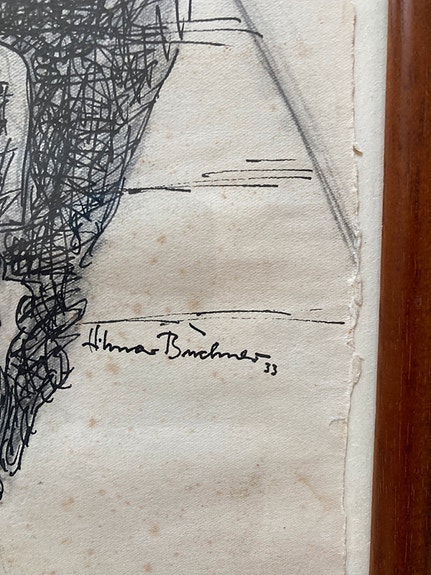 Hilmar Büchner 33